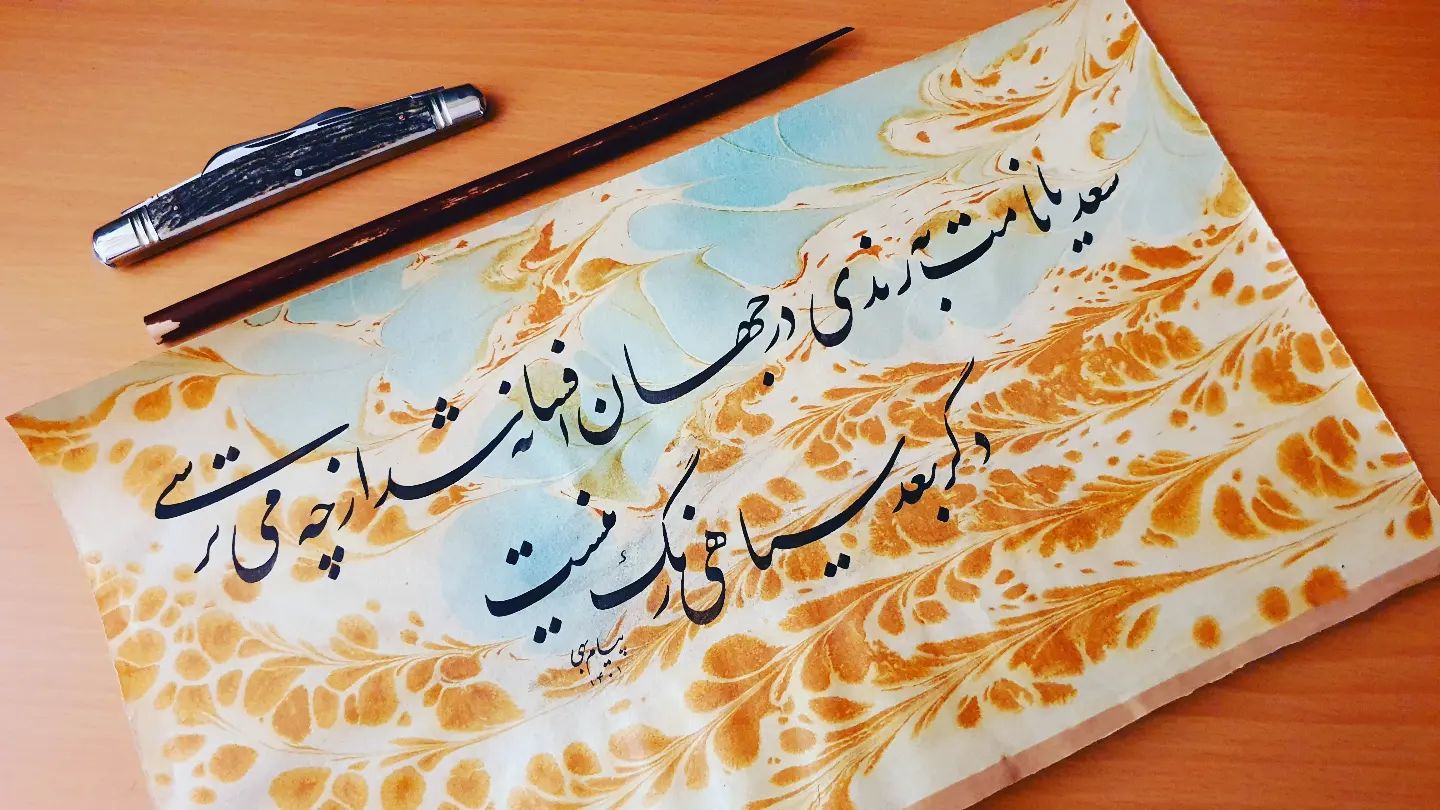 سعدیا نامت به رندی در جهان افسانه شد
از چه می ترسی دگر بعد سیاهی رنگ نیست
پیام بهی
۱۴۰۱